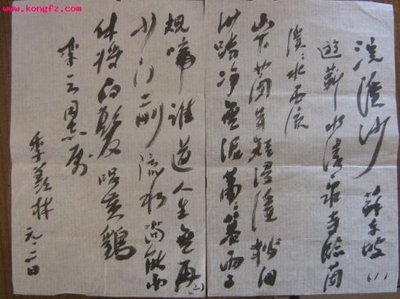 www.kongfz.com
浣溪沙 苏东坡 (1)
游蕲水清泉寺临蘭
溪溪水西流
山下蘭芽短浸溪 松间
沙路净无泥 萧萧暮雨子
规啼 谁道人生无再 (2)
少门前流水尚能西
休将白髮唱黄鸡
同志属
季羡林